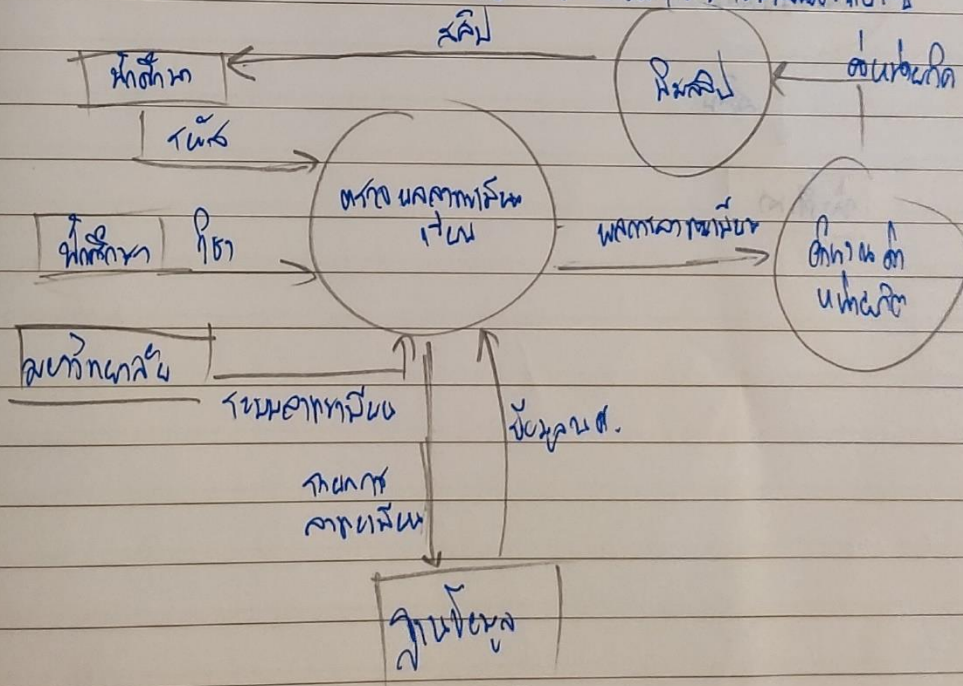 สลิป
นักศึกษา
พิมสลิป
ค่าหน่วยกิต
รหัส
ตรวจ ผลลงทะเบียน
เรียน
นักศึกษา วิชา
ผลการลงทะเบียน
คำนวณ ค่า
หน่วยกิต
มหาวิทยาลัย
ระบบลงทะเบียน
ข้อมูล น ศ.
รายการ
ลงทะเบียน
ฐานข้อมูล